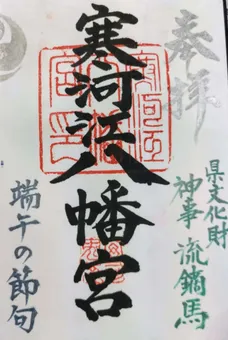 奉拝
県文化財
神事 流鏑馬
寒河江八幡宮
端午の節句